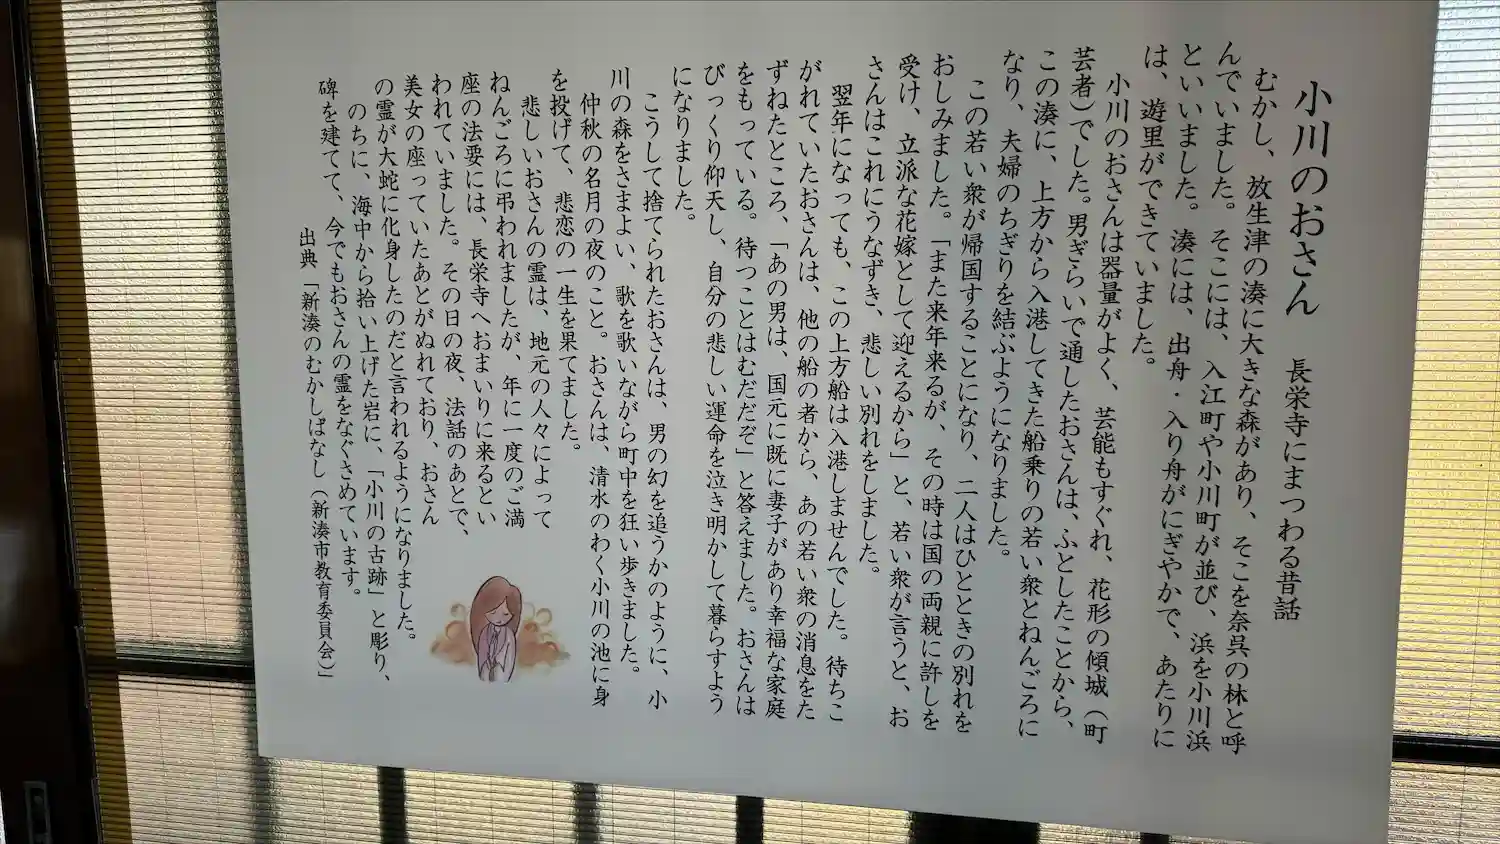 小川のおさん　長栄寺にまつわる昔話
むかし、放生津の湊に大きな森があり、そこを奈呉の林と呼
んでいました。そこには、入江町や小川町が並び、浜を小川浜
といいました。湊には、出舟・入り舟がにぎやかで、あたりに
は、遊里ができていました。
小川のおさんは器量がよく、芸能もすぐれ、花形の傾城（町
芸者）でした。男ぎらいで通したおさんは、ふとしたことから、
この湊に、上方から入港してきた船乗りの若い衆とねんごろに
なり、夫婦のちぎりを結ぶようになりました。
この若い衆が帰国することになり、二人はひとときの別れを
おしみました。「また来年来るが、その時は国の両親に許しを
受け、立派な花嫁として迎えるから」と、若い衆が言うと、お
さんはこれにうなずき、悲しい別れをしました。
翌年になっても、この上方船は入港しませんでした。待ちこ
がれていたおさんは、他の船の者から、あの若い衆の消息をた
ずねたところ、「あの男は、国元に既に妻子があり幸福な家庭
をもっている。待つことはむだだぞ」と答えました。おさんは
びっくり仰天し、自分の悲しい運命を泣き明かして暮らすよう
になりました。
こうして捨てられたおさんは、男の幻を追うかのように、小
川の森をさまよい、歌を歌いながら町中を狂い歩きました。
仲秋の名月の夜のこと。おさんは、清水のわく小川の池に身
を投げて、悲恋の一生を果てました。
悲しいおさんの霊は、地元の人々によって
ねんごろに弔われましたが、年に一度のご満
座の法要には、長栄寺へおまいりに来るとい
われていました。その日の夜、法話のあとで、
美女の座っていたあとがぬれており、おさん
の霊が大蛇に化身したのだと言われるようになりました。
のちに、海中から拾い上げた岩に、「小川の古跡」と彫り、
碑を建てて、今でもおさんの霊をなぐさめています。
出典「新湊のむかしばなし（新湊市教育委員会）」